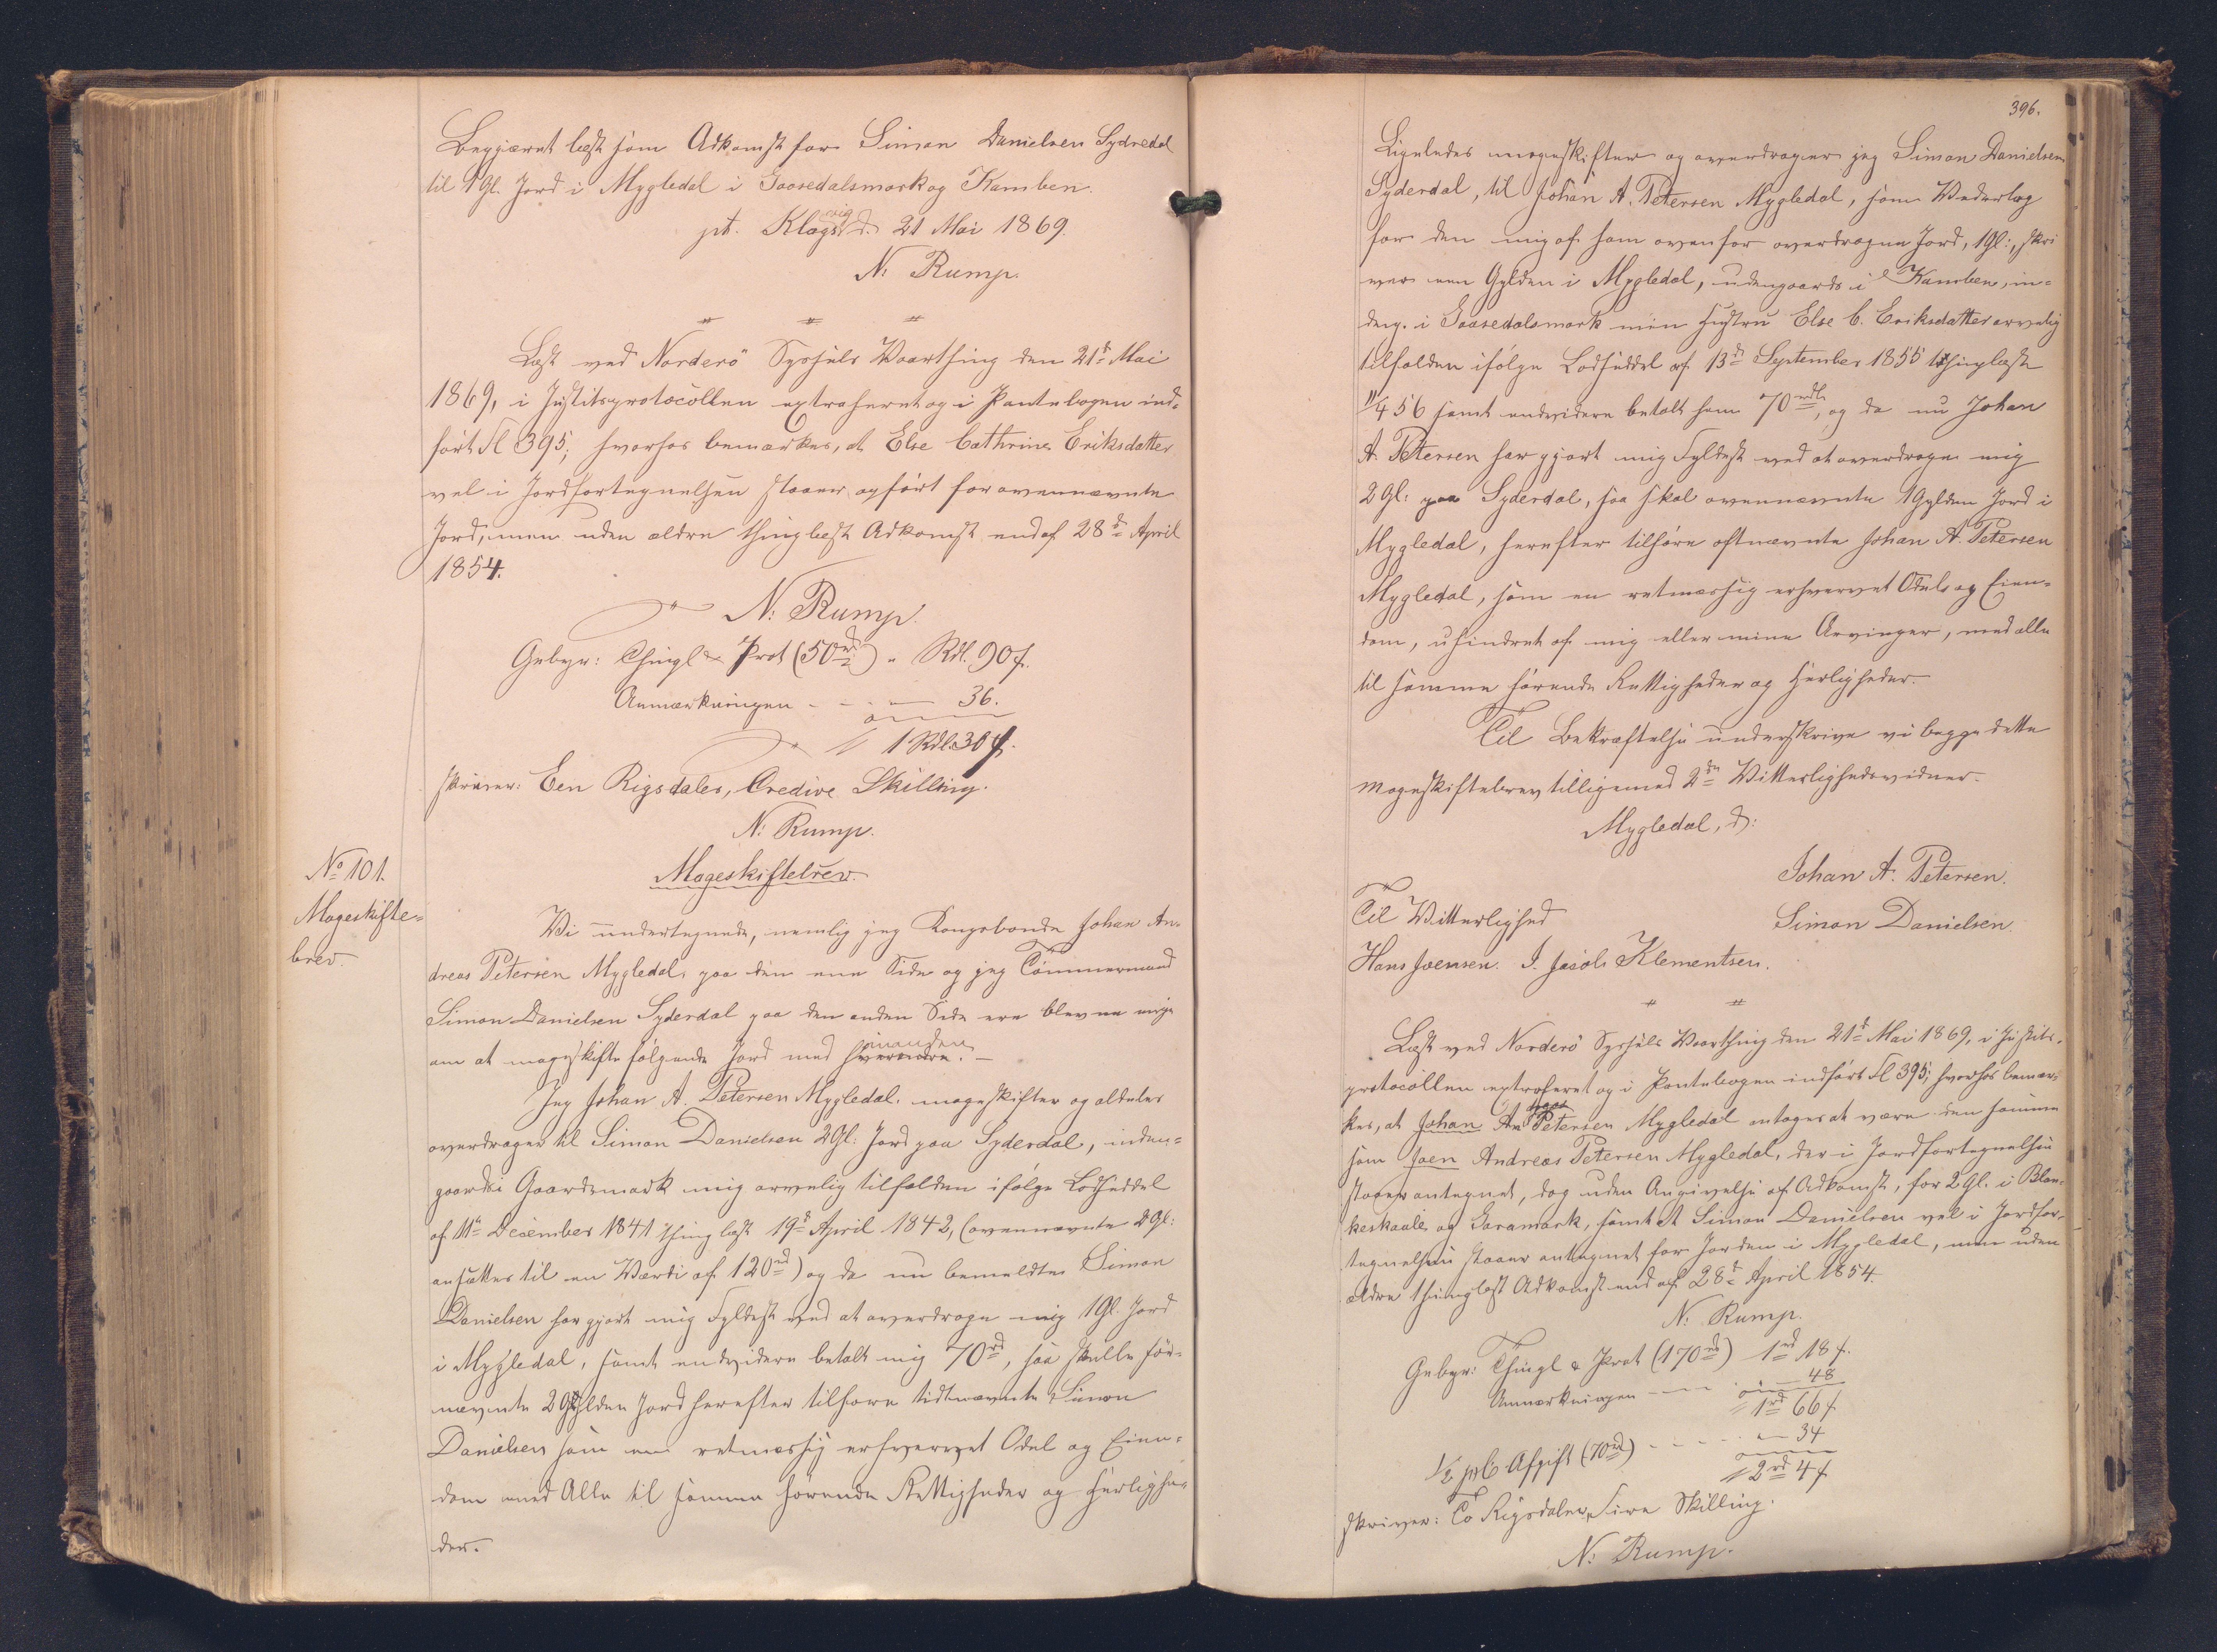 Begjæret læst som Adkomst for Simon Danielsen Sydredal
til 1 Gl. Jord i Mygledal i Gaasedalsmark og Kamben.
pt. Klagsvig d. 21 Mai 1869.
N. Rump.
Læst ved Norderö Syssels Vaarthing den 21d Mai
1869, i Justitsprotocollen extraheret og i Pantebogen ind-
fört Fl 395; hvorhos bemærkes, at Else Cathrine Eriksdatter
vel i Jordfortegnelsen staaer opfört for ovennævnte
Jord, men uden ældre thinglæst Adkomst end af 28d April
1854.
N. Rump.
Gebyr: Thingl & Prot (50rd) " Rdl. 90 s.
Anmærkningen - - - 36.
1 Rdl. 30 s.
skriver: Een Rigsdaler, Tredive Skilling.
N: Rump.
No 101.
Mageskifte-
brev
Mageskiftebrev.
Vi undertegnede, nemlig jeg Kongsbonde Johan An-
dreas Petersen Mygledal, paa den ene Side og jeg Tömmermand
Simon Danielsen Syderdal paa den anden Side ere blevne enige
om at mageskifte fölgende Jord med hverandre. hinanden
Jeg Johan A. Petersen Mygledal. mageskifter og aldeles
overdrager til Simon Danielsen 2 Gl: Jord paa Syderdal, inden-
gaards i Gaardsmark mig arvelig tilfalden ifölge Lodseddel
af 11te December 1841 thinglæst 19d April 1842, (ovennævnte 2 Gl:
ansættes til en Værdi af 120rd) og da nu bemeldte Simon
Danielsen har gjort mig Fyldest ved at overdrage mig 1 Gl. Jord
i Mygledal, samt endvidere betalt mig 70rd, saa skulle for-
nævnte 2 Gylden Jord herefter tilhöre tidtnævnte Simon
Danielsen som en retmæssig erhvervet Odel og Eien-
dom med Alle til samme hörende Rettigheder og Herlighe-
der.
396.
Ligeledes mageskifter og overdrager jeg Simon Danielsen
Syderdal, til Johan A. Petersen Mygledal, som Vederlag
for den mig af ham ovenfor overdragne Jord, 1 Gl:, skri
ver een Gylden i Mygledal, udengaards i Kamben, in-
deng. i Gaasedalsmark min Hustru Else C. Eriksdatter arvelig
tilfalden ifölge Lodseddel af 13de September 1855 thinglæst
11/4 56 samt endvidere betalt ham 70 rdl, og da nu Johan
A. Petersen har gjort mig Fyldest ved at overdrage mig
2 Gl: paa Syderdal, saa skal ovennævnte 1 Gylden Jord i
Mygledal, herefter tilhöre oftnævnte Johan A. Petersen
Mygledal, som en retmæssig erhvervet Odels og Eien-
dom, uhindret af mig eller mine Arvinger, med alle
til samme hörende Rettigheder og Herligheder.
Til Bekræftelse underskrive vi begge dette
Mageskiftebrev tilligemed 2de Vitterlighedsvidner.
Mygledal, d:
Johan A. Petersen.
Til Vitterlighed
Simon Danielsen.
Hans Joensen. J. Jacob Klementsen.
Læst ved Norderö Syssels Vaarthing den 21d Mai 1869, i Justits-
protocollen extraheret og i Pantebogen indfört Fl 395; hvorhos bemær-
kes, at Johan An dreas Petersen Mygledal antages at være den samme
som Joen Andreas Petersen Mygledal, der i Jordfortegnelsen
staaer antegnet, dog uden Angivelse af Adkomst, for 2 Gl. i Blan-
keskaale og Garamark, samt at Simon Danielsen vel i Jordfor-
tegnelsen staaer antegnet for Jorden i Mygledal, men uden
ældre thinglæst Adkomst end af 28d April 1854.
N. Rump.
Gebyr: Thingl & Prot (170rd) 1rd 18 s.
Anmærkningen - - - 48
1rd 66 s.
1/2 pC Afgift (70rd) - - - 34
2rd 4 s.
skriver: To Rigsdaler, Fire Skilling.
N: Rump.